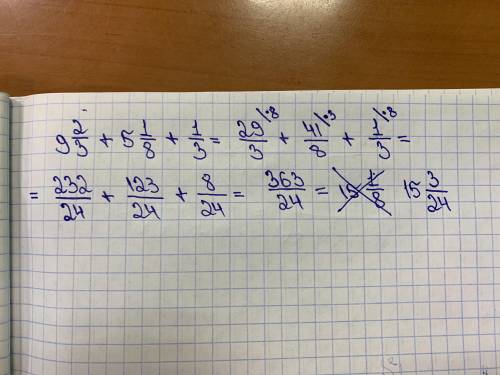 9 2/3 + 5 1/8 + 1/3 = 29/3 /·8 + 41/8 /·3 + 1/3 /·8 =
= 232/24 + 123/24 + 8/24 = 363/24 = 15 1/8 15 3/24